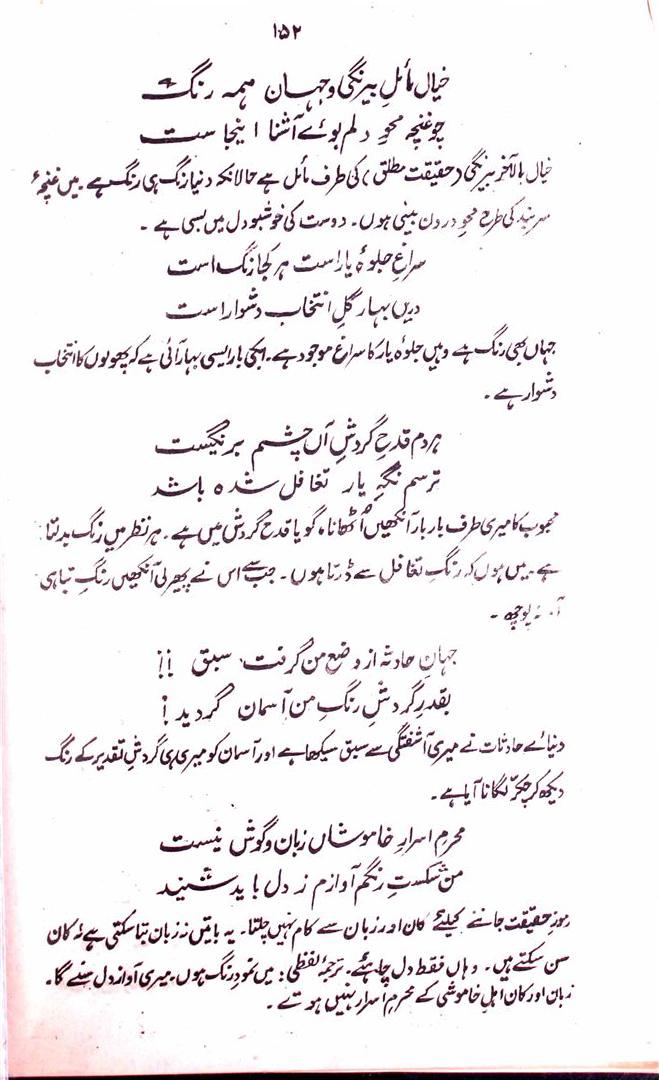 ۱۵۲
خیال مائلِ بیرنگی و جہان ہمہ رنگ
چو غنچہ محوِ دلم بوئے آشنا اینجا ست
خیال بالآخر بیرنگی (حقیقت مطلق) کی طرف مائل ہے حالانکہ دنیا رنگ ہی رنگ ہے۔ میں غنچۂ
سربند کی طرح محو درون بینی ہوں۔ دوست کی خوشبو دل میں بسی ہے۔
سراغِ جلوۂ یار است ہر کجا رنگ است
دریں بہار گلِ انتخاب دشوار است
جہاں بھی رنگ ہے وہیں جلوۂ یار کا سراغ موجود ہے۔ ابکی بار ایسی بہار آئی ہے کہ پھولوں کا انتخاب
دشوار ہے۔
ہر دم قدحِ گردشِ آں چشم برنگیست
ترسم نگہِ یار تغافل شدہ باشد
محبوب کا میری طرف بار بار آنکھیں اُٹھانا، گویا قدح گردش میں ہے۔ ہر نظر میں رنگ بدلتا
ہے۔ میں ہوں کہ رنگِ تغافل سے ڈرتا ہوں۔ جب سے اس نے پھیر لی آنکھیں رنگِ تباہی
آہ نہ پوچھ۔
جہانِ حادثہ از وضع من گرفت سبق !!
بقدرِ گردشِ رنگِ من آسمان گردید !
دنیائے حادثات نے میری آشفتگی سے سبق سیکھا ہے اور آسمان کو میری ہی گردشِ تقدیر کے رنگ
دیکھ کر چکّر لگانا آیا ہے۔
محرمِ اسرارِ خاموشاں زبان و گوش نیست
من شکستِ رنگم آوازم ز دل باید شنید
رموزِ حقیقت جاننے کیلئے کان اور زبان سے کام نہیں چلتا۔ یہ باتیں نہ زبان بتا سکتی ہے نہ کان
سن سکتے ہیں۔ وہاں فقط دل چاہئے۔ ترجمہ لفظی: میں نمودِ رنگ ہوں میری آواز دل سنے گا۔
زبان اور کان اہلِ خاموشی کے محرمِ اسرار نہیں ہوتے۔